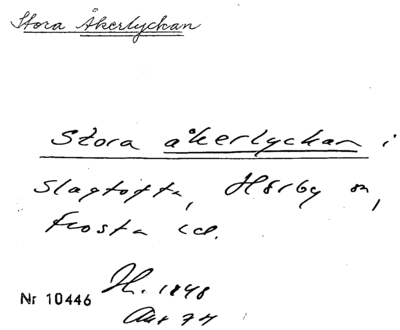 Stora Åkerlyckan
Stora åkerlyckan i
Slagtofta, Hörby sn,
Frosta
Nr 10446 H. 1848